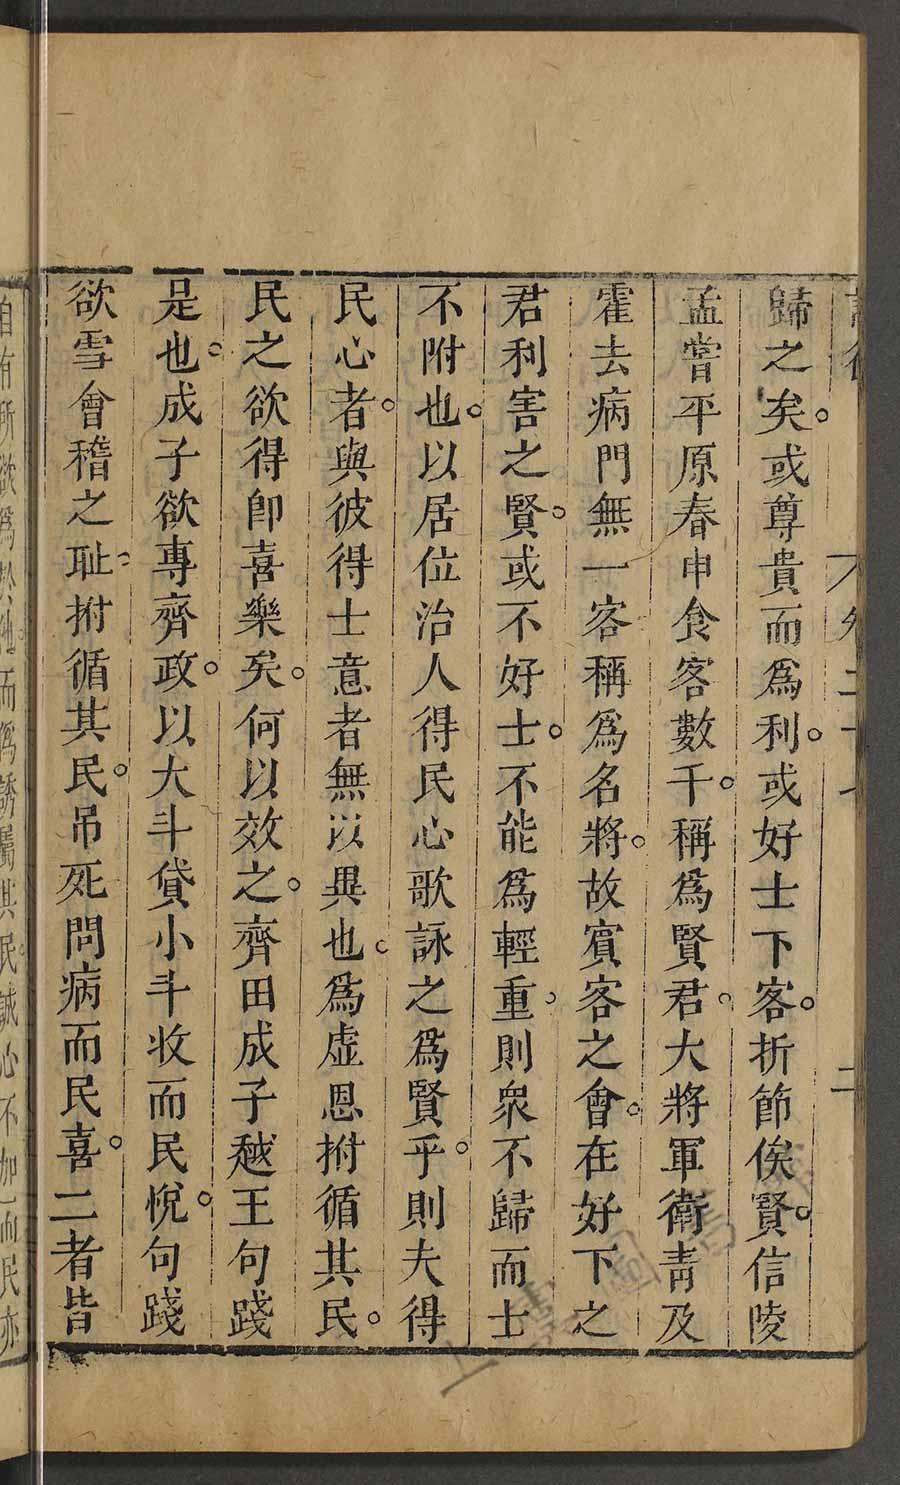 歸之矣。或尊貴而爲利。或好士下客。折節俟賢。信陵
孟嘗平原春申食客數千。稱爲賢君。大將軍衛青及
霍去病門無一客稱爲名將。故賓客之會。在好下之
君利害之賢。或不好士。不能爲輕重。則衆不歸而士
不附也。以居位治人得民心歌詠之爲賢乎。則夫得
民心者。與彼得士意者無以異也。爲虛恩拊循其民。
民之欲得卽喜樂矣。何以效之。齊田成子越王句踐
是也。成子欲專齊政。以大斗貸小斗收而民悅。句踐
欲雪會稽之耻。拊循其民。吊死問病而民喜。二者皆
自有所欲爲於他。而僞誘屬其民。誠心不加而民亦